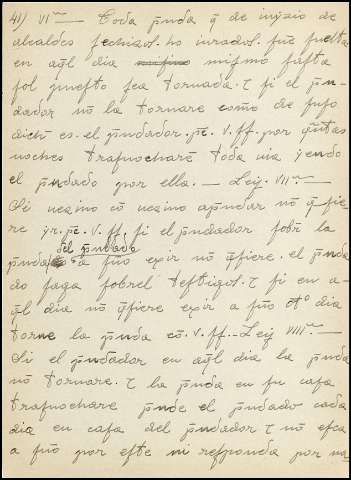 41) VIª — Toda p̃nda q̃ de iuyzio de
alcaldes fechisol. ho iurados. fue fuelta
en aq̃l dia mifmo fafta
fol puefto fea tornada. τ fi el p̃n-
dador no la tornare como de fufo
dicħ es. el p̃ndador. pe. V. ff. por q̃ntas
noches trafnochare toda uia yendo
el p̃ndado por ella. — Ley. VIIª —
Si uezino cō uezino a pundar no q̃fie
re yr. pe. V. ff. fi el p̃ndador fobr̃ la
del p̃ndado
p̃nda a fuo exir no q̃fiere. el p̃nda
do faga fobrel teftigol. τ fi en a-
q̃l dia no q̃fiere exir a fuo oto dia
torne la p̃nda cō. V. ff. — Ley VIIIª —
Si el p̃ndador en aq̃l dia la p̃nda
no tornare. τ la p̃nda en fu cafa
trafnochare p̃nde el p̃ndado cada
dia en cafa del p̃ndador τ no efca
a fuo por efte ni refponda por na-